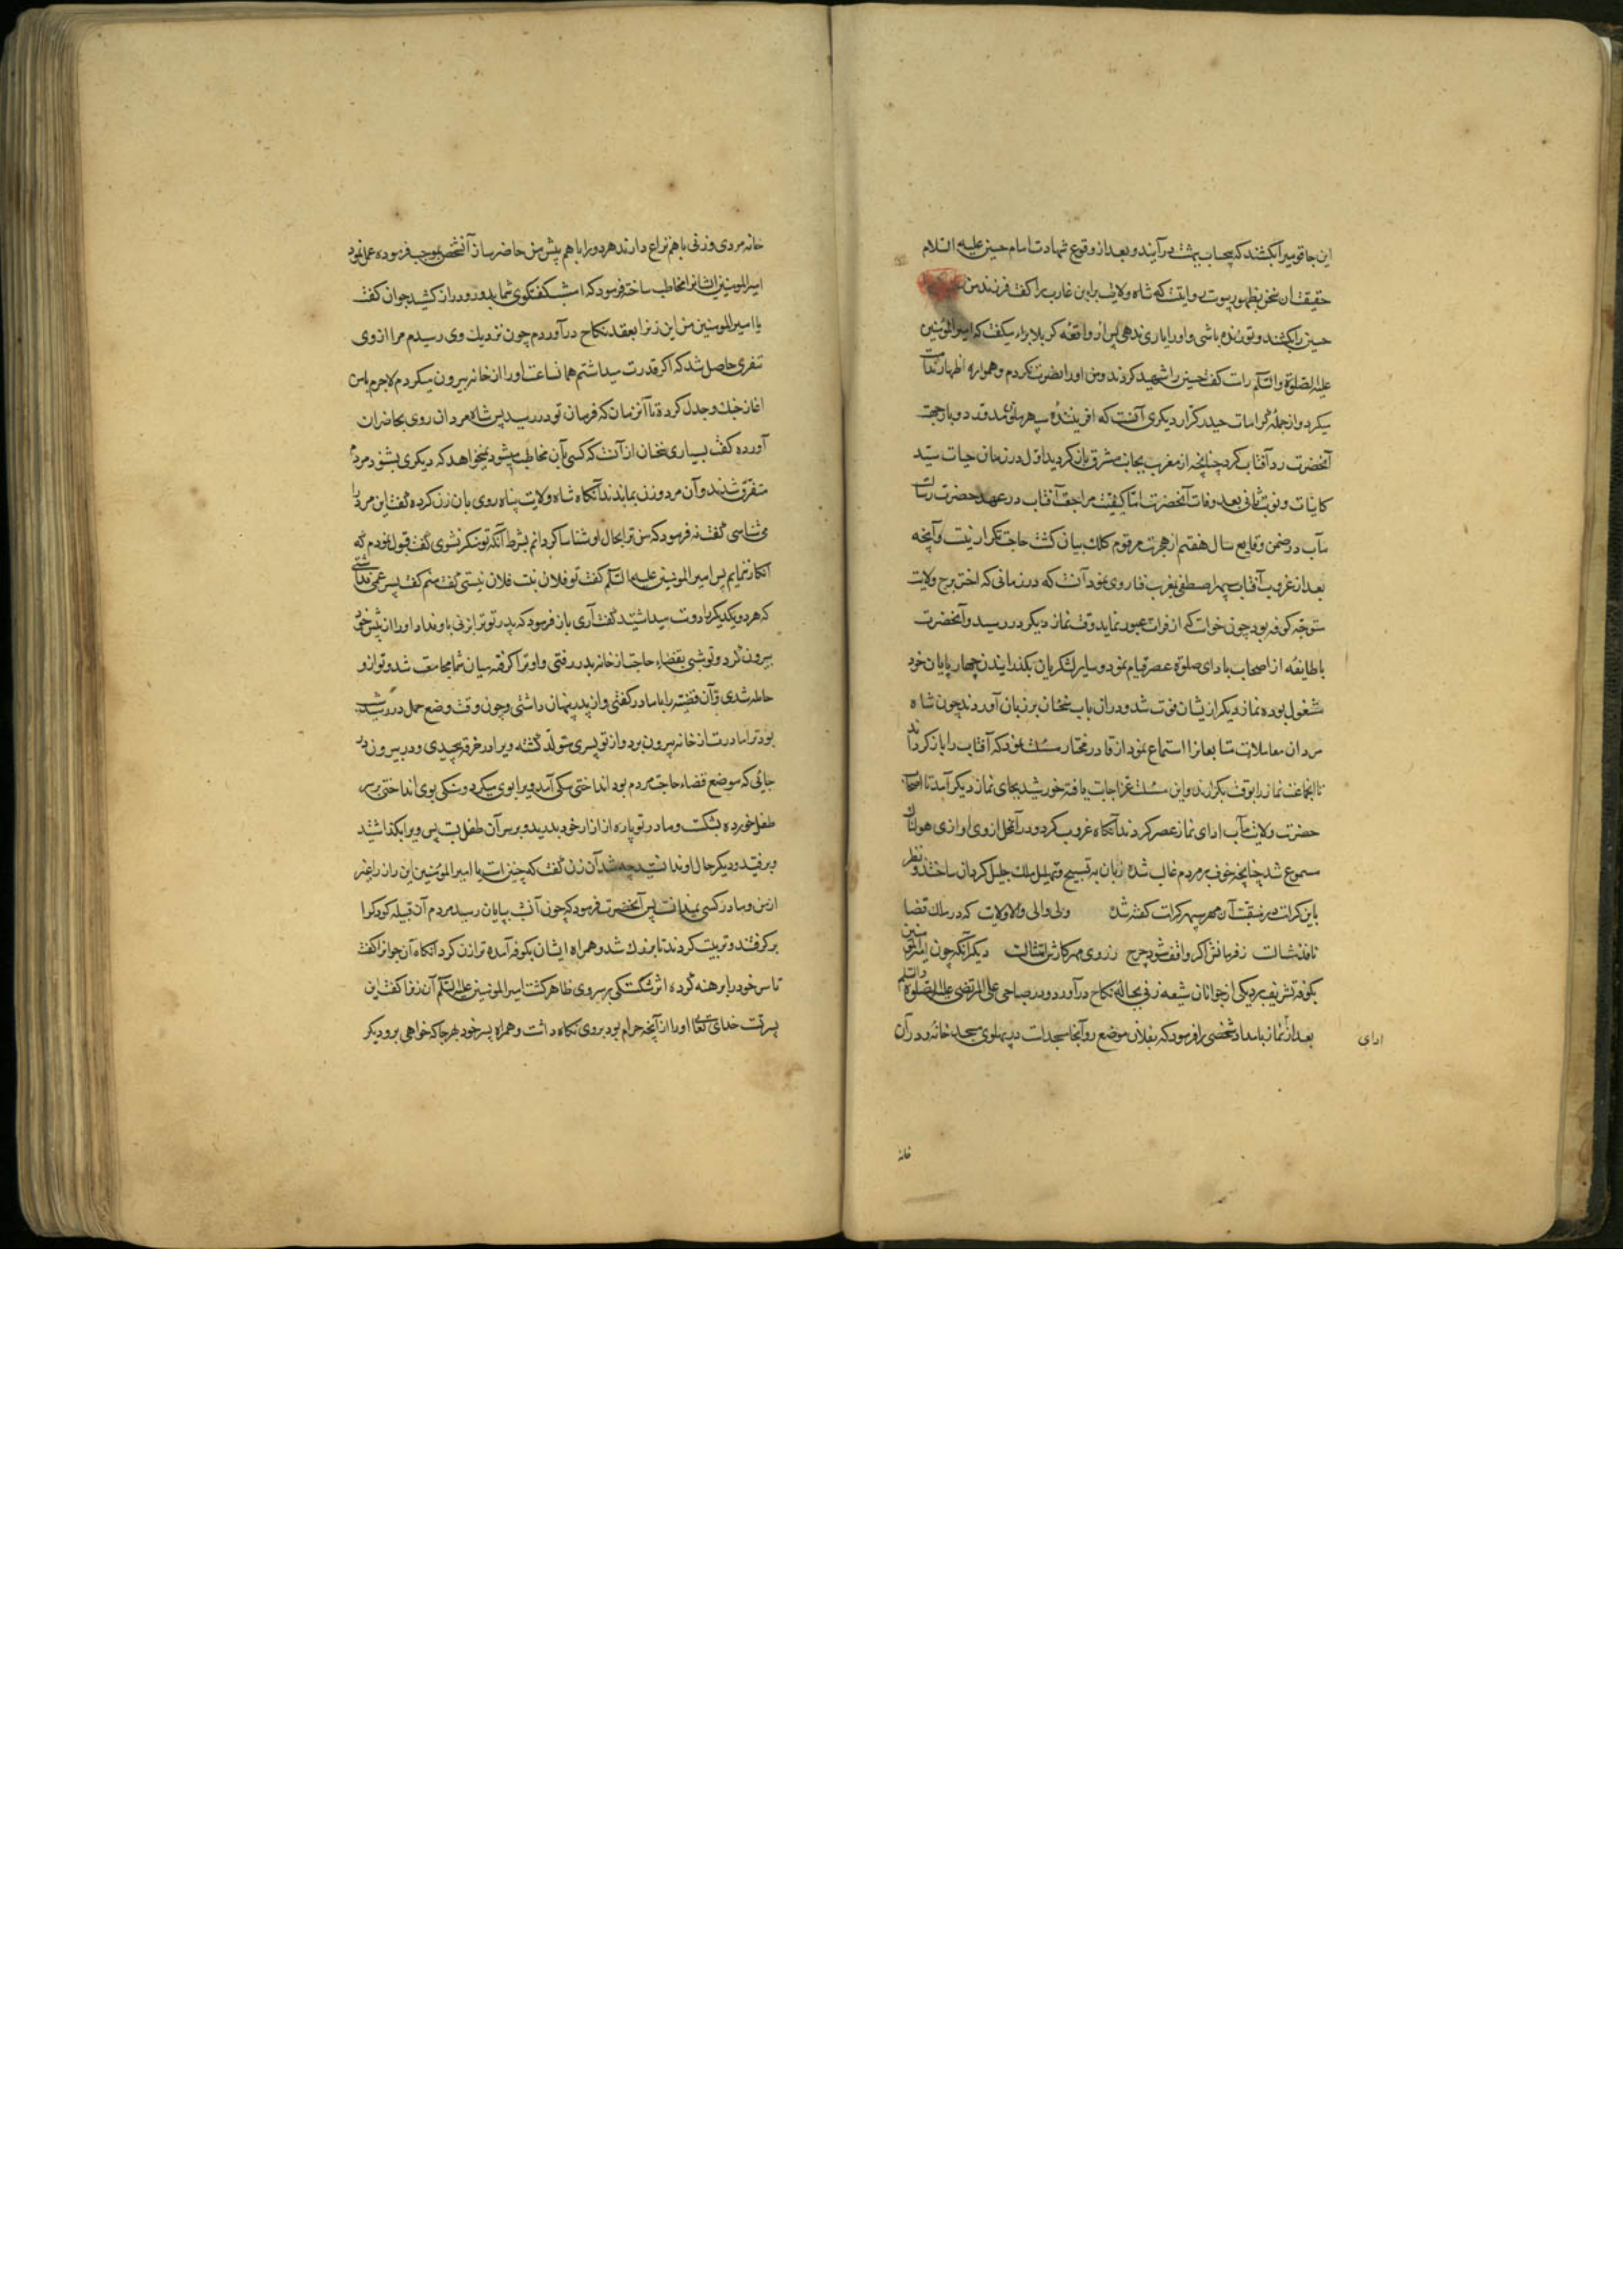 این جا قومیرا بکشند که بیحساب ببهشت در آیند و بعد از وقوع شهادت امام حسین علیه السلام
حقیقت آن سخن بظهور پیوست روایتست که شاه ولایت براء بن عازب را گفت فرزند من
حسین را بکشند و تو زنده باشی و او را یاری ندهی پس از واقعهٔ کربلا براء میگفت که امیرالمؤمنین
علیه الصلوة والسلم راست گفت حسین را شهید کردند و من او را نصرت نکردم و همواره اظهار ندامت
میکرد و از جملهٔ کرامات حیدر کرار دیگری آنست که آفرینندهٔ سپهر ملمع مقدار دو بار جهت
آنحضرت رد آفتاب کرد چنانچه از مغرب بجانب مشرق باز گردید اول در زمان حیات سید
کاینات و نوبت ثانی بعد وفات آنحضرت اما کیفیت مراجعت آفتاب در عهد حضرت رسالت
مآب در ضمن وقایع سال هفتم از هجرت مرقوم کلک بیان گشت حاجت تکرار نیست و آنچه
بعد از غروب آفتاب سپهر اصطفی بمغرب فنا روی نمود آنست که در زمانی که اختر برج ولایت
متوجه کوفه بود چون خواست که از فرات عبور نماید وقت نماز دیگر در رسید و آنحضرت
با طایفهٔ از اصحاب بادای صلوة عصر قیام نمود و سایر لشکریان بگذرانیدن چهارپایان خود
مشغول بوده نماز دیگر ازیشان فوت شد و در آن باب سخنان بر زبان آوردند چون شاه
مردان معاملات متابعانرا استماع نمود از قادر مختار مسئلت نمود که آفتاب را باز گرداند
تا آنجماعت نماز را بوقت بگزارند و این مسئلت عز اجابت یافته خورشید بجای نماز دیگر آمد تا اصحاب
حضرت ولایت مآب ادای نماز عصر کردند آنگاه غروب کرد و در آنمحل از وی آوازی هولناک
مسموع شد چنانچه خوف بر مردم غالب شده زبان به تسبیح و تهلیل ملک جلیل گردان ساختند و نظر
باین کرامت در منقبت آن مهر سپهر کرامت گفته شده ولی والی والا ولایت که در ملک قضا
نافذ مثالست ز فرمانش اگر واقف شود چرخ ز روی مهر کارش امتثالست دیگر آنکه چون امیرالمؤمنین
بکوفه تشریف برد یکی از جوانان شیعه زنی بحبالهٔ نکاح درآورد و در صباحی علی المرتضی علیه الصلوة والسلم
بعد از نماز بامداد شخصی را فرمود که بفلان موضع رو آنجا مسجدیست در پهلوی مسجد خانهٔ و در آن
ادای
خانه
خانه مردی و زنی باهم نزاع دارند هر دو را باهم پیش من حاضر ساز آنشخص بموجب فرموده عمل نمود
امیرالمومنین ایشانرا مخاطب ساخته فرمود که امشب گفتگوی شما بدور و دراز کشید جوان گفت
یا امیرالمومنین من این زن را بعقد نکاح درآوردم چون نزدیک وی رسیدم مرا از وی
تنفری حاصل شد که اگر قدرت میداشتم همانساعت او را از خانه بیرون میکردم لاجرم با من
آغاز جنگ و جدل کرده تا آنزمان که فرمان تو در رسید پس شاه مردان روی بحاضران
آورده گفت بسیاری سخنان از آنست که کسی که بآن مخاطب میشود نمیخواهد که دیگری بشنود مردم
متفرق شدند و آن مرد و زن بماندند آنگاه شاه ولایت پناه روی بآن زن کرده گفت این مرد را
می شناسی گفت نه فرمود که من ترا بحال او شناسا گردانم بشرط آنکه تو منکر نشوی گفت قبول نمودم که
انکار ننمایم پس امیرالمومنین علیه السلم گفت تو فلان بنت فلان نیستی گفت منم گفت پسر عمی نداشتی
که هر دو یکدیگر را دوست میداشتید گفت آری باز فرمود که پدر تو ترا بزنی باو نداد و او را از پیش خود
بیرون کرد و تو شبی بقضاء حاجت از خانه بدر رفتی و او ترا گرفته میان شما مجامعت شد و تو از و
حامله شدی و آن قضیه را با مادر گفتی و از پدر پنهان داشتی و چون وقت وضع حمل در رسید شب
بود ترا مادرت از خانه بیرون برد و از تو پسری متولد گشته ویرا در خرقه پیچیدی و در بیرون در
جائی که موضع قضاء حاجت مردم بود انداختی سگی آمد ویرا بوی میکرد و سنگی بوی انداختی بر سر
طفل خورده بشکست و مادر تو پاره از ازار خود بدرید و بر سر آن طفل بست پس ویرا بگذاشتید
و برفتید و دیگر حال او ندانستید چه شد آن زن گفت که چنین است یا امیرالمؤمنین این راز را غیر
از من و مادر کسی نمیدانست پس آنحضرت فرمود که چون آنشب بپایان رسید مردم آن قبیله کودک را
برگرفتند و تربیت کردند تا بزرگ شد و همراه ایشان بکوفه آمده ترا زن کرد آنگاه آن جوانرا گفت
تا سر خود را برهنه کرده اثر شکستگی بر سر وی ظاهر گشت امیرالمومنین علیه السلم آن زنرا گفت این
پسر تست خدای تعالی او را از آنچه حرام بود بر وی نگاه داشت و همراه پسر خود بهر جا که خواهی برو دیگر